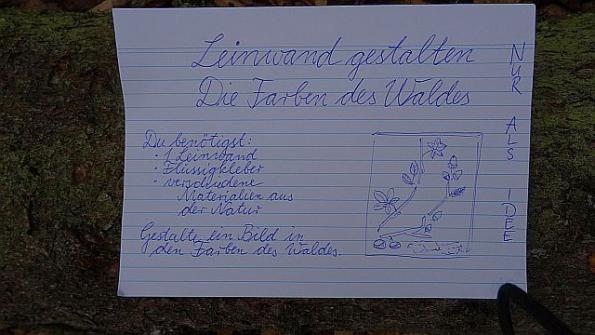 Leinwand gestalten
Die Farben des Waldes
Du benötigst:
· 1 Leinwand
· Flüssigkleber
· verschiedene
Materialien aus
der Natur
Gestalte ein Bild in
den Farben des Waldes.
NUR ALS IDEE